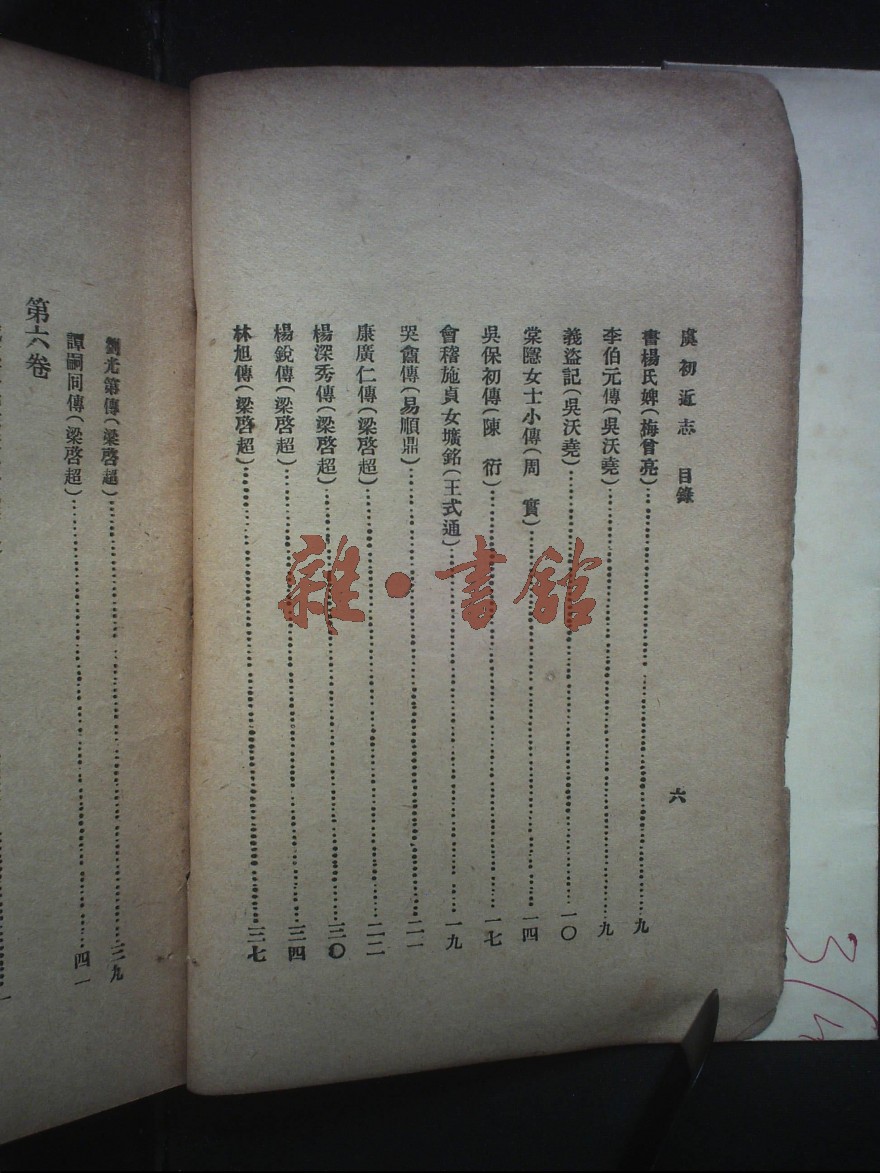 虞初近志　目錄　六
書楊氏婢（梅曾亮）……九
李伯元傳（吳沃堯）……九
義盜記（吳沃堯）……一〇
棠隱女士小傳（周　實）……一四
吳保初傳（陳　衍）……一七
會稽施貞女壙銘（王式通）……一九
哭盦傳（易順鼎）……二一
康廣仁傳（梁啓超）……二二
楊深秀傳（梁啓超）……三〇
楊銳傳（梁啓超）……三四
林旭傳（梁啓超）……三七
劉光第傳（梁啓超）……三九
譚嗣同傳（梁啓超）……四一
第六卷
雜·書館
3/4